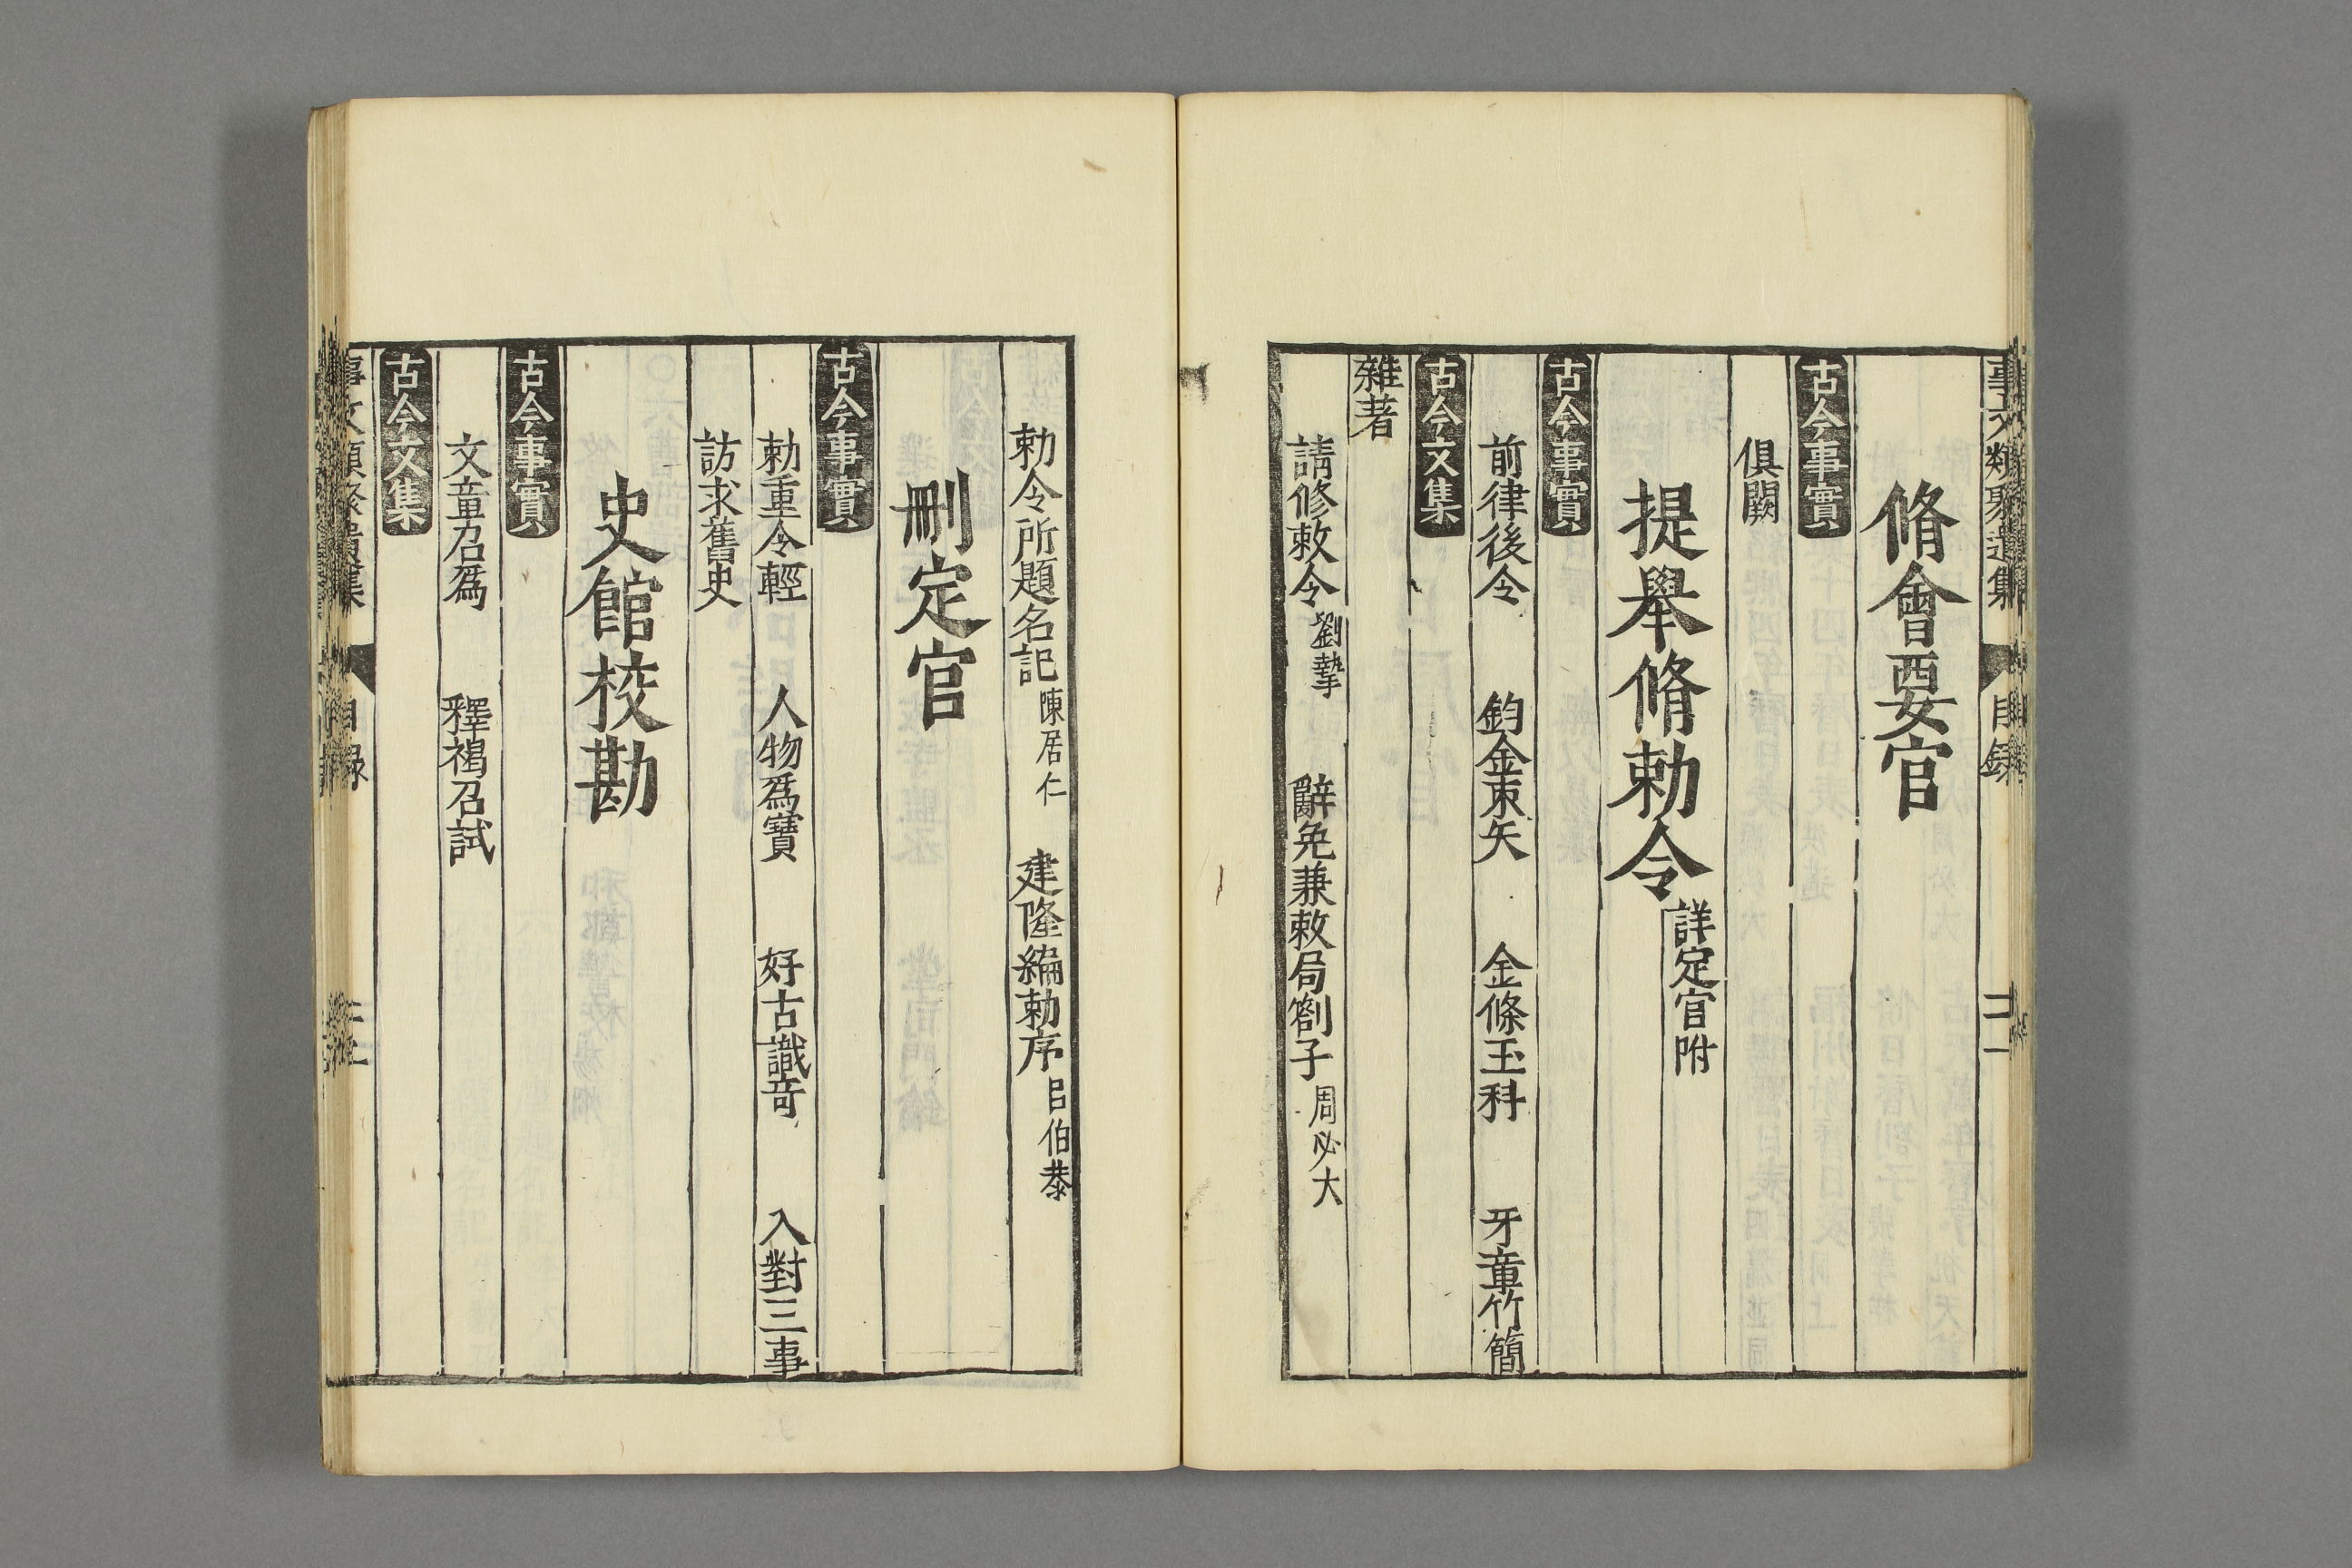 事文類聚遺集 目錄 二一
脩會要官
古今事實
俱闕
提舉脩勅令 詳定官附
古今事實
前律後令 鈞金束矢 金條玉科 牙章竹簡
古今文集
雜著
請修敕令 劉摯 辭免兼敕局劄子 周必大
勅令所題名記 陳居仁 建隆編勅序 呂伯恭
刪定官
古今事實
勅重令輕 人物爲寶 好古識奇 入對三事
訪求舊史
史館校勘
古今事實
文章召爲 釋褐召試
古今文集
事文類聚遺集 目錄